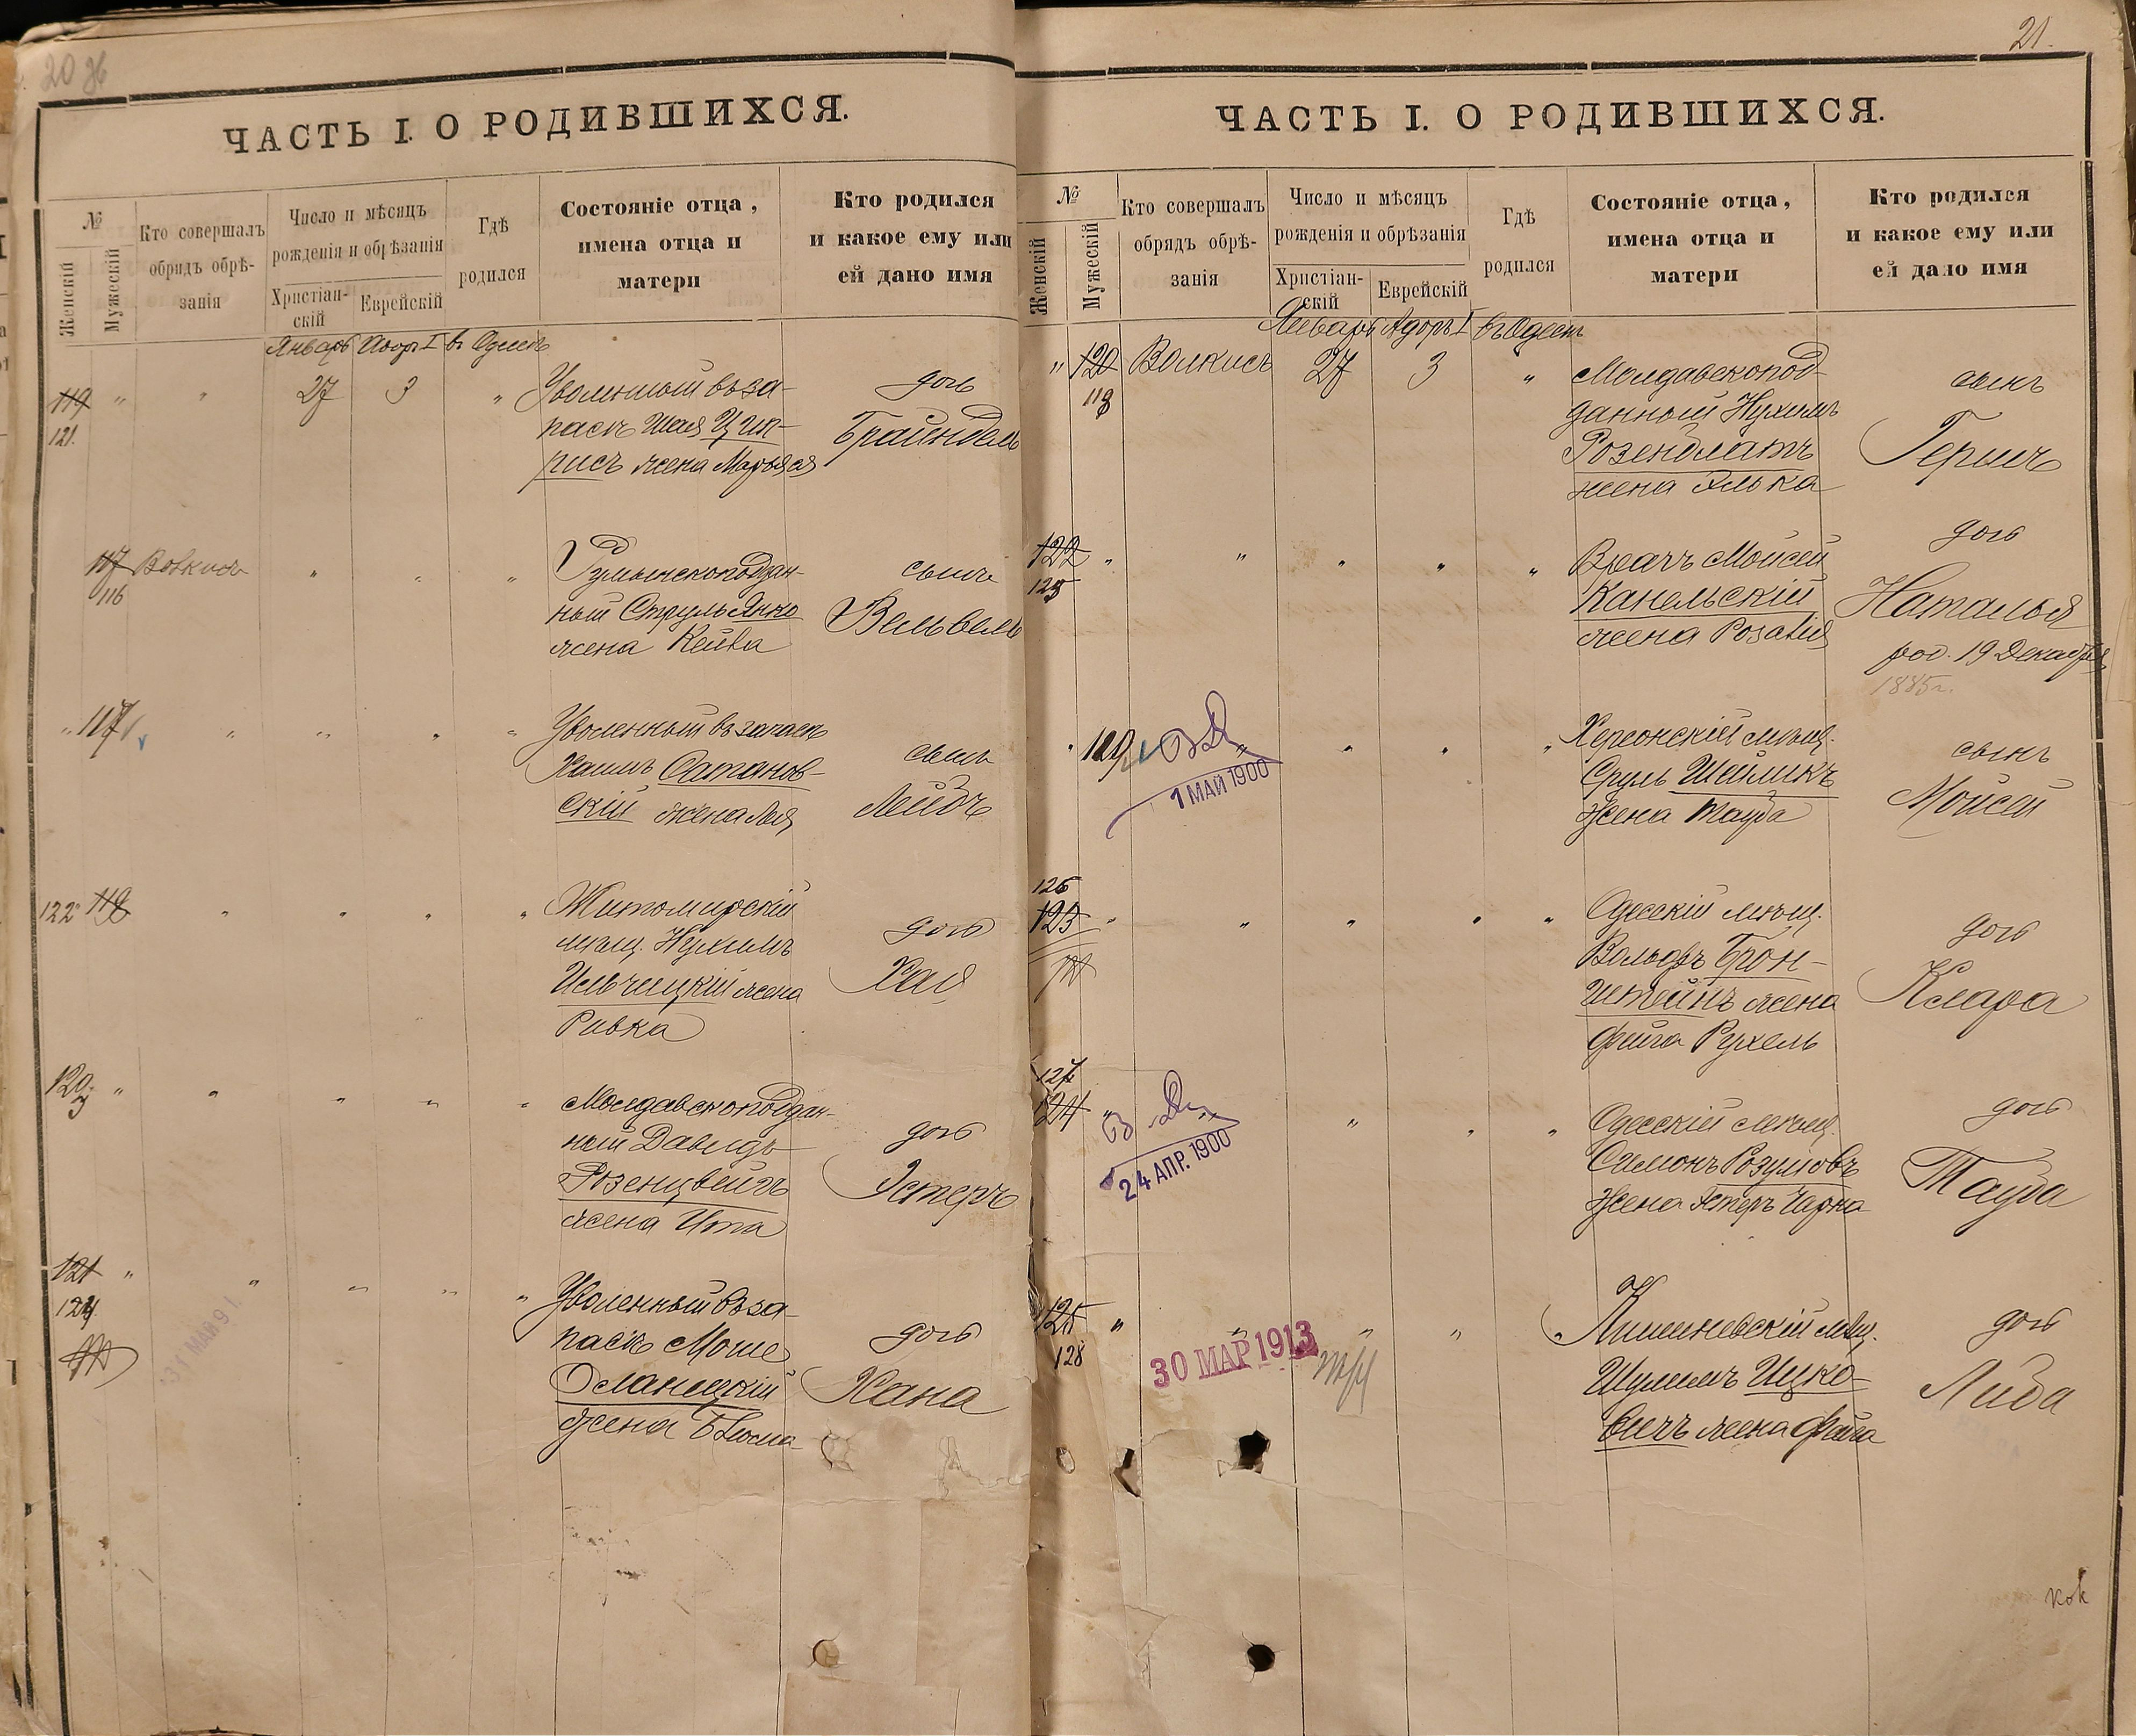 20 об
ЧАСТЬ I. О РОДИВШИХСЯ.
№
Женскій
Мужескій
Кто совершалъ
обрядъ обрѣ-
занія
Число и мѣсяцъ
рожденія и обрѣзанія
Христіан-
скій
Еврейскій
Гдѣ
родился
Состояніе отца,
имена отца и
матери
Кто родился
и какое ему или
ей дано имя
Январь Адоръ I въ Одессѣ
119 " " 27 3 " Уволенный въ за-
121.
пасъ Шая Цип-
рисъ жена Марьяся
дочь
Брайндель
117 Волкисъ " " " Румынскоподдан-
116
ный Струль Янко
жена Кейла
сынъ
Вельвель
" 117 " " " " Уволенный въ запасъ
Хаимъ Сатанов-
скій жена Лея
сынъ
Лейбъ
122 118 " " " " Житомирскій
мѣщ. Нухимъ
Ильчицкій жена
Ривка
дочь
Хая
120 " " " " " Молдавскоподдан-
3
ный Давидъ
Розенцвейгъ
жена Ита
дочь
Эстеръ
121 " " " " " Уволенный въ за-
124.
31 МАР 91
пасъ Моше
Осланецкій
жена Блюма
дочь
Хана
21.
ЧАСТЬ I. О РОДИВШИХСЯ.
№
Женскій
Мужескій
Кто совершалъ
обрядъ обрѣ-
занія
Число и мѣсяцъ
рожденія и обрѣзанія
Христіан-
скій
Еврейскій
Гдѣ
родился
Состояніе отца,
имена отца и
матери
Кто родился
и какое ему или
ей дано имя
Январь Адоръ I въ Одессѣ
" 120 Волкисъ 27 3 " Молдавскопод-
118
данный Нухимъ
Розенблатъ
жена Элька
сынъ
Гершъ
122 " " " " " Врачъ Мойсей
125
Канельскій
жена Розалія
дочь
Наталья
род. 19 Декабря
1885г.
" 119 " " " " Херсонскій мѣщ.
1 МАЙ 1900
Сруль Шейликъ
жена Тауба
сынъ
Мойсей
126
123 " " " " " Одесскій мѣщ.
Вольфъ Брон-
штейнъ жена
Фейга Рухель
дочь
Клара
127
124 " " " " " Одесскій мѣщ.
24 АПР. 1900
Симонъ Розумовъ
жена Эстеръ Чарна
дочь
Тауба
125 " " " " " Кишиневскій мѣщ.
128
30 МАР 1913
Шулимъ Ицко-
вичъ жена Фейга
дочь
Либа
кок